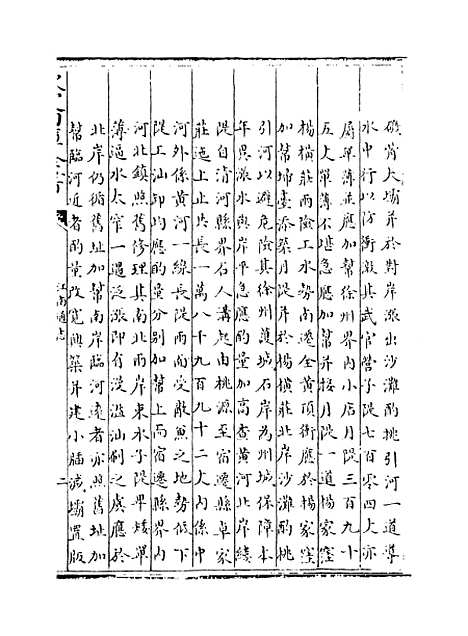 磯嘴大壩并於對岸漲出沙灘酌挑引河一道導
水中行以防衝激其武官營子隄七百零四丈亦
屬單薄並應加幫徐州界內小店月隄三百九十
五丈單薄不堪急應加幫并接月隄一道楊家窪
楊橫莊兩險工水勢南逺全黄頂衝應於楊家窪
加幫埽臺添築月隄并於楊橫莊北岸沙灘酌挑
引河以避危險其徐州䕶城石岸為州城保障本
年異漲水與岸平急應酌量加高查黄河北岸縷
隄自清河縣界石人溝起由桃源至宿遷縣卓家
莊迤上止共長一萬八千九百九十二丈内係中
河外係黄河一線長隄兩面受敵兼之地勢低下
隄工汕卸均應酌量分别加幫上而宿遷縣界内
河北鎮照舊修理其南北兩岸束水子隄卑矮單
薄過水太窄一遇泛漲即有漫溢汕刷之虞應於
北岸仍循舊址加幫南岸臨河逺者亦照舊址加
幫臨河近者酌量改寛興築并建小牐減壩置版
江南通志
二